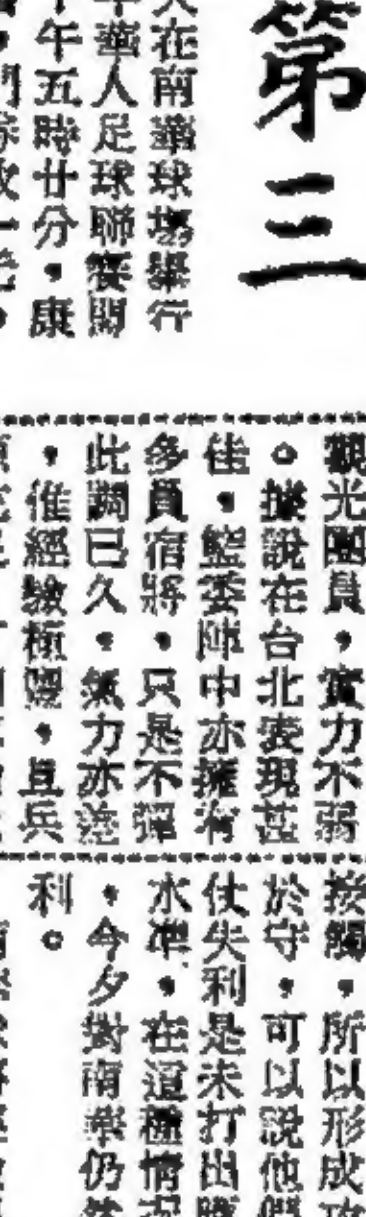 第三
在南華球塲舉行
華人足球聯賽開
午五時廿分，康
觀光團員，實力不弱
。據說在台北表現甚
佳，籃委陣中亦擁有
多員宿將，只是不彈
此調已久，氣力亦差
，惟經驗極豐，且兵
接觸，所以形成攻
於守，可以說他們
仗失利是未打出
水準，在這種情況
，今夕對南華仍然
利。